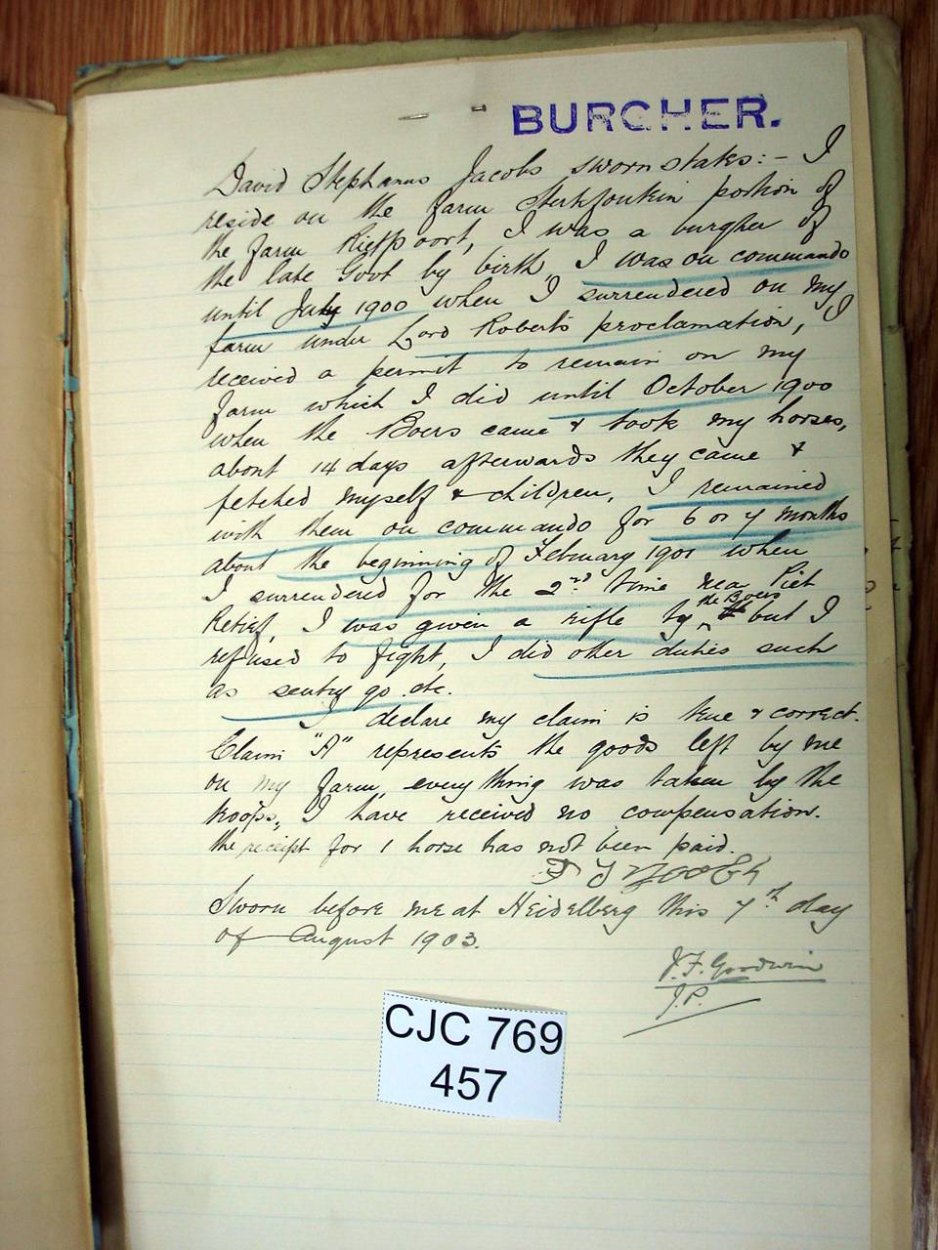 BURGHER.
David Stephanus Jacobs sworn states:- I
reside on the farm Sterkfontein portion of
the farm Rietpoort, I was a burgher of
the late Govt by birth, I was on commando
until July 1900 when I surrendered on my
farm under Lord Roberts proclamation, I
received a permit to remain on my
farm which I did until October 1900
when the Boers came & took my horses,
about 14 days afterwards they came &
fetched myself & children, I remained
with them on commando for 6 or 7 months
about the beginning of February 1901 when
I surrendered for the 2nd time near Piet
Retief, I was given a rifle by the Boers but I
refused to fight, I did other duties such
as sentry go etc.
I declare my claim is true & correct.
Claim "A" represents the goods left by me
on my farm, everything was taken by the
troops, I have received no compensation.
the receipt for 1 horse has not been paid.
Sworn before me at Heidelberg this 7th day
of August 1903.
J.F. Goodwin
J.P.
CJC 769
457